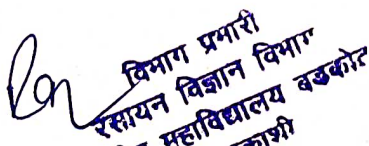 विभाग प्रभारी
रसायन विज्ञान विभाग
महाविद्यालय बडकोट